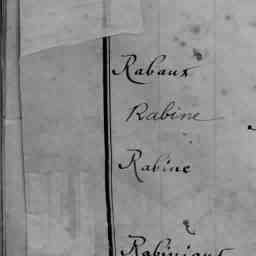 Rabaux
Rabine
Rabine